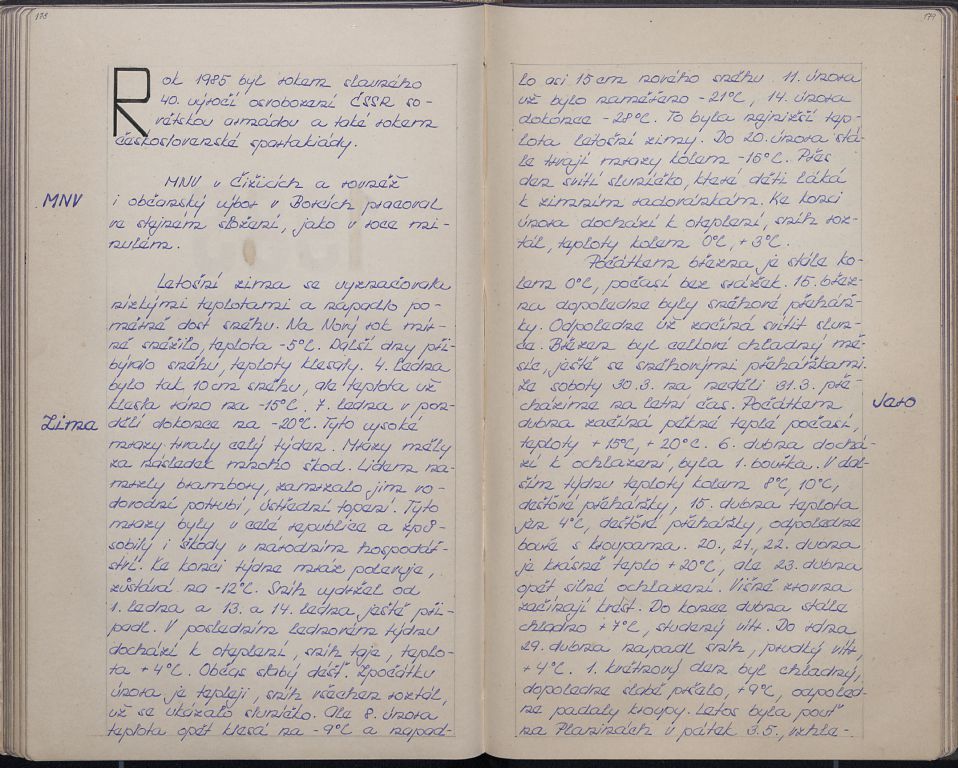 178
Rok 1985 byl rokem slavného
40. výročí osvobození ČSSR so-
větskou armádou a také rokem
československé spartakiády.
MNV
MNV v Čižicích a rovněž
i občanský výbor v Borcích pracoval
ve stejném složení, jako v roce mi-
nulém.
Letošní zima se vyznačovala
nízkými teplotami a napadlo po-
měrně dost sněhu. Na Nový rok mír-
ně sněžilo, teplota -5°C. Další dny při-
bývalo sněhu, teploty klesaly. 4. ledna
bylo tak 10 cm sněhu, ale teplota už
klesla ráno na -15°C. 7. ledna v pon-
Zima
dělí dokonce na -20°C. Tyto vysoké
mrazy trvaly celý týden. Mrazy měly
za následek mnoho škod. Lidem na-
mrzly brambory, zamrzalo jim vo-
dovodní potrubí, ústřední topení. Tyto
mrazy byly v celé republice a způ-
sobily i škody v národním hospodář-
ství. Ke konci týdne mráz polevuje,
zůstává na -12°C. Sníh vydržel od
1. ledna a 13. a 14. ledna ještě při-
padl. V posledním lednovém týdnu
dochází k oteplení, sníh taje, teplo-
ta +4°C. Občas slabý déšť. Zpočátku
února je tepleji, sníh všechen roztál,
už se ukázalo sluníčko. Ale 8. února
teplota opět klesá na -9°C a napad-
179
lo asi 15 cm nového sněhu. 11. února
už bylo naměřeno -21°C, 14. února
dokonce -28°C. To byla nejnižší tep-
lota letošní zimy. Do 20. února stá-
le trvají mrazy kolem -15°C. Přes
den svítí sluníčko, které děti láká
k zimním radovánkám. Ke konci
února dochází k oteplení, sníh roz-
tál, teploty kolem 0°C, +3°C.
Počátkem března je stále ko-
lem 0°C, počasí bez srážek. 15. břez-
na dopoledne byly sněhové přeháň-
ky. Odpoledne už začíná svítit slun-
ce. Březen byl celkově chladný mě-
síc, ještě se sněhovými přeháňkami.
Ze soboty 30.3. na neděli 31.3. pře-
cházíme na letní čas. Počátkem
Jaro
dubna začíná pěkné teplé počasí,
teploty +15°C, +20°C. 6. dubna dochá-
zí k ochlazení, byla 1. bouřka. V dal-
ším týdnu teploty kolem 8°C, 10°C,
dešťové přeháňky, 15. dubna teplota
jen 4°C, dešťové přeháňky, odpoledne
bouře s kroupama. 20., 21., 22. dubna
je krásné teplo +20°C, ale 23. dubna
opět silné ochlazení. Višně zrovna
začínají kvést. Do konce dubna stále
chladno +7°C, studený vítr. Do rána
29. dubna napadl sníh, prudký vítr,
+4°C. 1. květnový den byl chladný,
dopoledne slabě pršelo, +9°C, odpoled-
ne padaly kroupy. Letos byla pouť
na Planinách v pátek 3.5., vzhle-